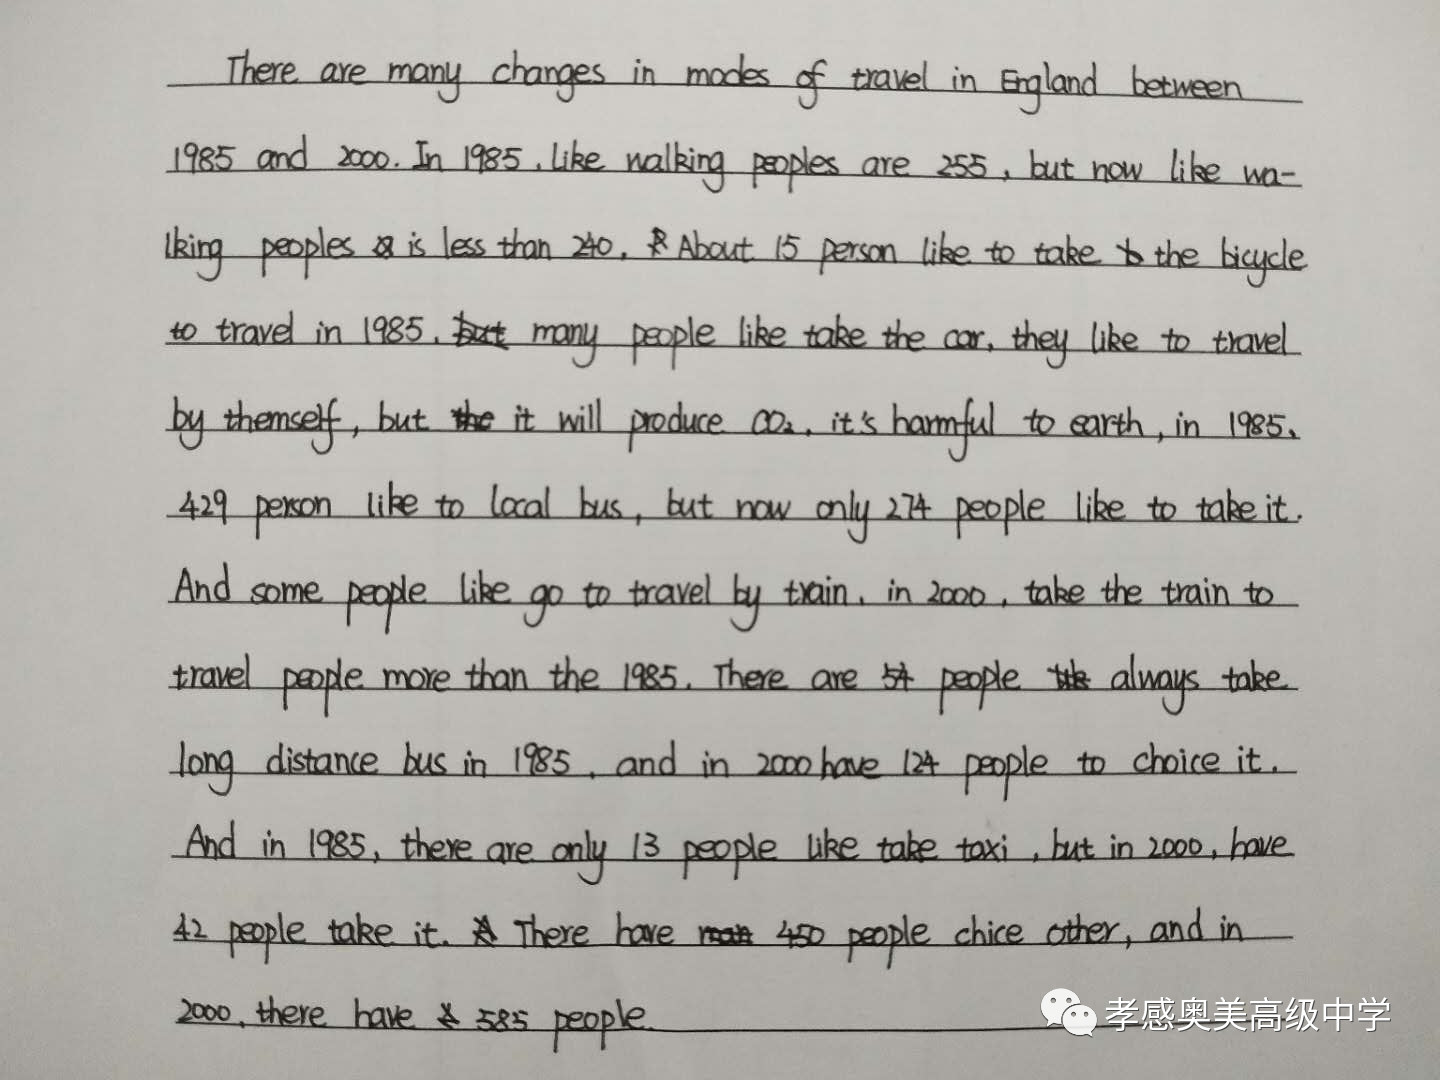 There are many changes in modes of travel in England between
1985 and 2000. In 1985, like walking peoples are 255, but now like wa-
lking peoples is less than 240. About 15 person like to take the bicycle
to travel in 1985. many people like take the car, they like to travel
by themself, but it will produce CO₂, it's harmful to earth, in 1985,
429 person like to local bus, but now only 274 people like to take it.
And some people like go to travel by train, in 2000, take the train to
travel people more than the 1985. There are 54 people always take
long distance bus in 1985, and in 2000 have 124 people to choice it.
And in 1985, there are only 13 people like take taxi, but in 2000, have
42 people take it. There have 450 people chice other, and in
2000, there have 585 people.
孝感奥美高级中学